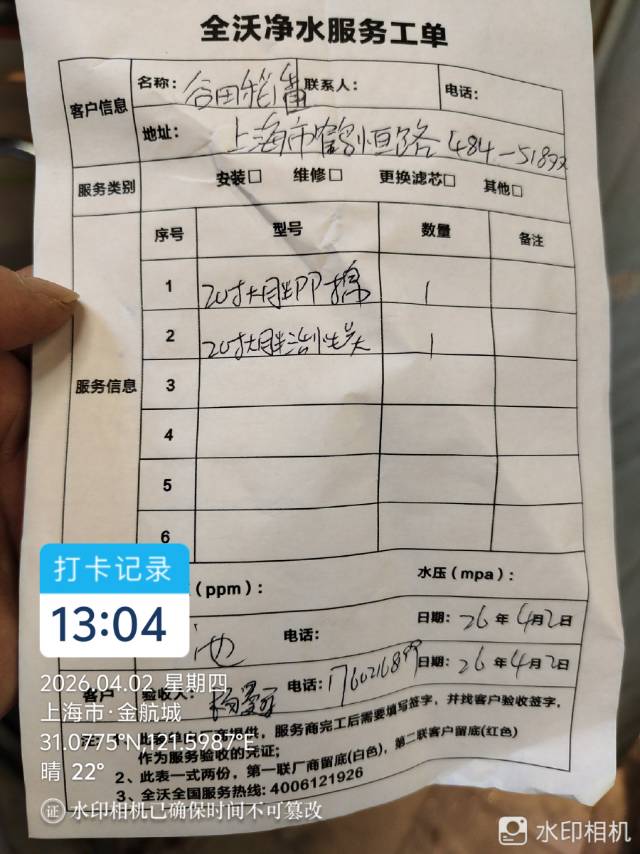 全沃净水服务工单
客户信息
名称：谷田稻香 联系人： 电话：
地址：上海市鹤恒路484-518
服务类别 安装□ 维修□ 更换滤芯□ 其他□
服务信息
序号 型号 数量 备注
1 20寸大胖PP棉 1
2 20寸大胖活性炭 1
3
4
5
6
(ppm)： 水压(mpa)：
电话： 日期：26年4月2日
客户 验收人： 电话： 日期：26年4月2日
服务商完工后需要填写签字，并找客户验收签字，
作为服务验收的凭证；
2、此表一式两份，第一联厂商留底(白色)，第二联客户留底(红色)
3、全沃全国服务热线：4006121926
打卡记录
13:04
2026.04.02 星期四
上海市·金航城
31.0775°N,121.5987°E
晴 22°
证 水印相机已确保时间不可篡改
水印相机